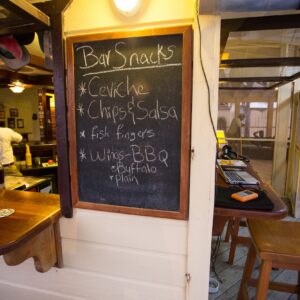 Bar Snacks
* Ceviche
* Chips & Salsa
* fish fingers
* Wings - BBQ
* Buffalo
* Plain